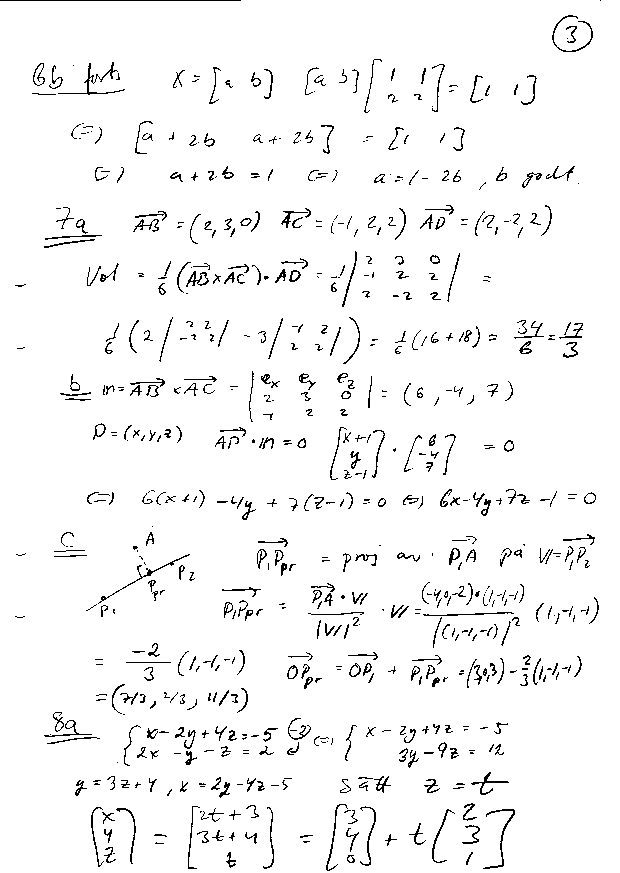 3
6b forts X = [a b] [a b] [1 1 / 2 2] = [1 1]
⇔ [a + 2b a + 2b] = [1 1]
⇔ a + 2b = 1 ⇔ a = 1 - 2b, b godt.
7a AB = (2, 3, 0) AC = (-1, 2, 2) AD = (2, -2, 2)
Vol = 1/6 (AB × AC) · AD = 1/6 | 2 3 0 / -1 2 2 / 2 -2 2 | =
1/6 (2 | 2 2 / -2 2 | - 3 | -1 2 / 2 2 |) = 1/6 (16 + 18) = 34/6 = 17/3
b n = AB × AC = | ex ey ez / 2 3 0 / -1 2 2 | = (6, -4, 7)
P = (x, y, z) AP · n = 0 [x+1 / y / z-1] · [6 / -4 / 7] = 0
⇔ 6(x+1) - 4y + 7(z-1) = 0 ⇔ 6x - 4y + 7z - 1 = 0
c A P1 Ppr P2 P1Ppr = proj av P1A på v = P1P2
P1Ppr = P1A · v / |v|² · v = (-4,0,-2)·(1,-1,-1) / |(1,-1,-1)|² (1,-1,-1)
= -2/3 (1,-1,-1) OPpr = OP1 + P1Ppr = (3,0,3) - 2/3 (1,-1,-1)
= (7/3, 2/3, 11/3)
8a { x - 2y + 4z = -5 / 2x - y - z = 2 (-2) ⇔ { x - 2y + 4z = -5 / 3y - 9z = 12
y = 3z + 4, x = 2y - 4z - 5 sätt z = t
[x / y / z] = [2t + 3 / 3t + 4 / t] = [3 / 4 / 0] + t [2 / 3 / 1]